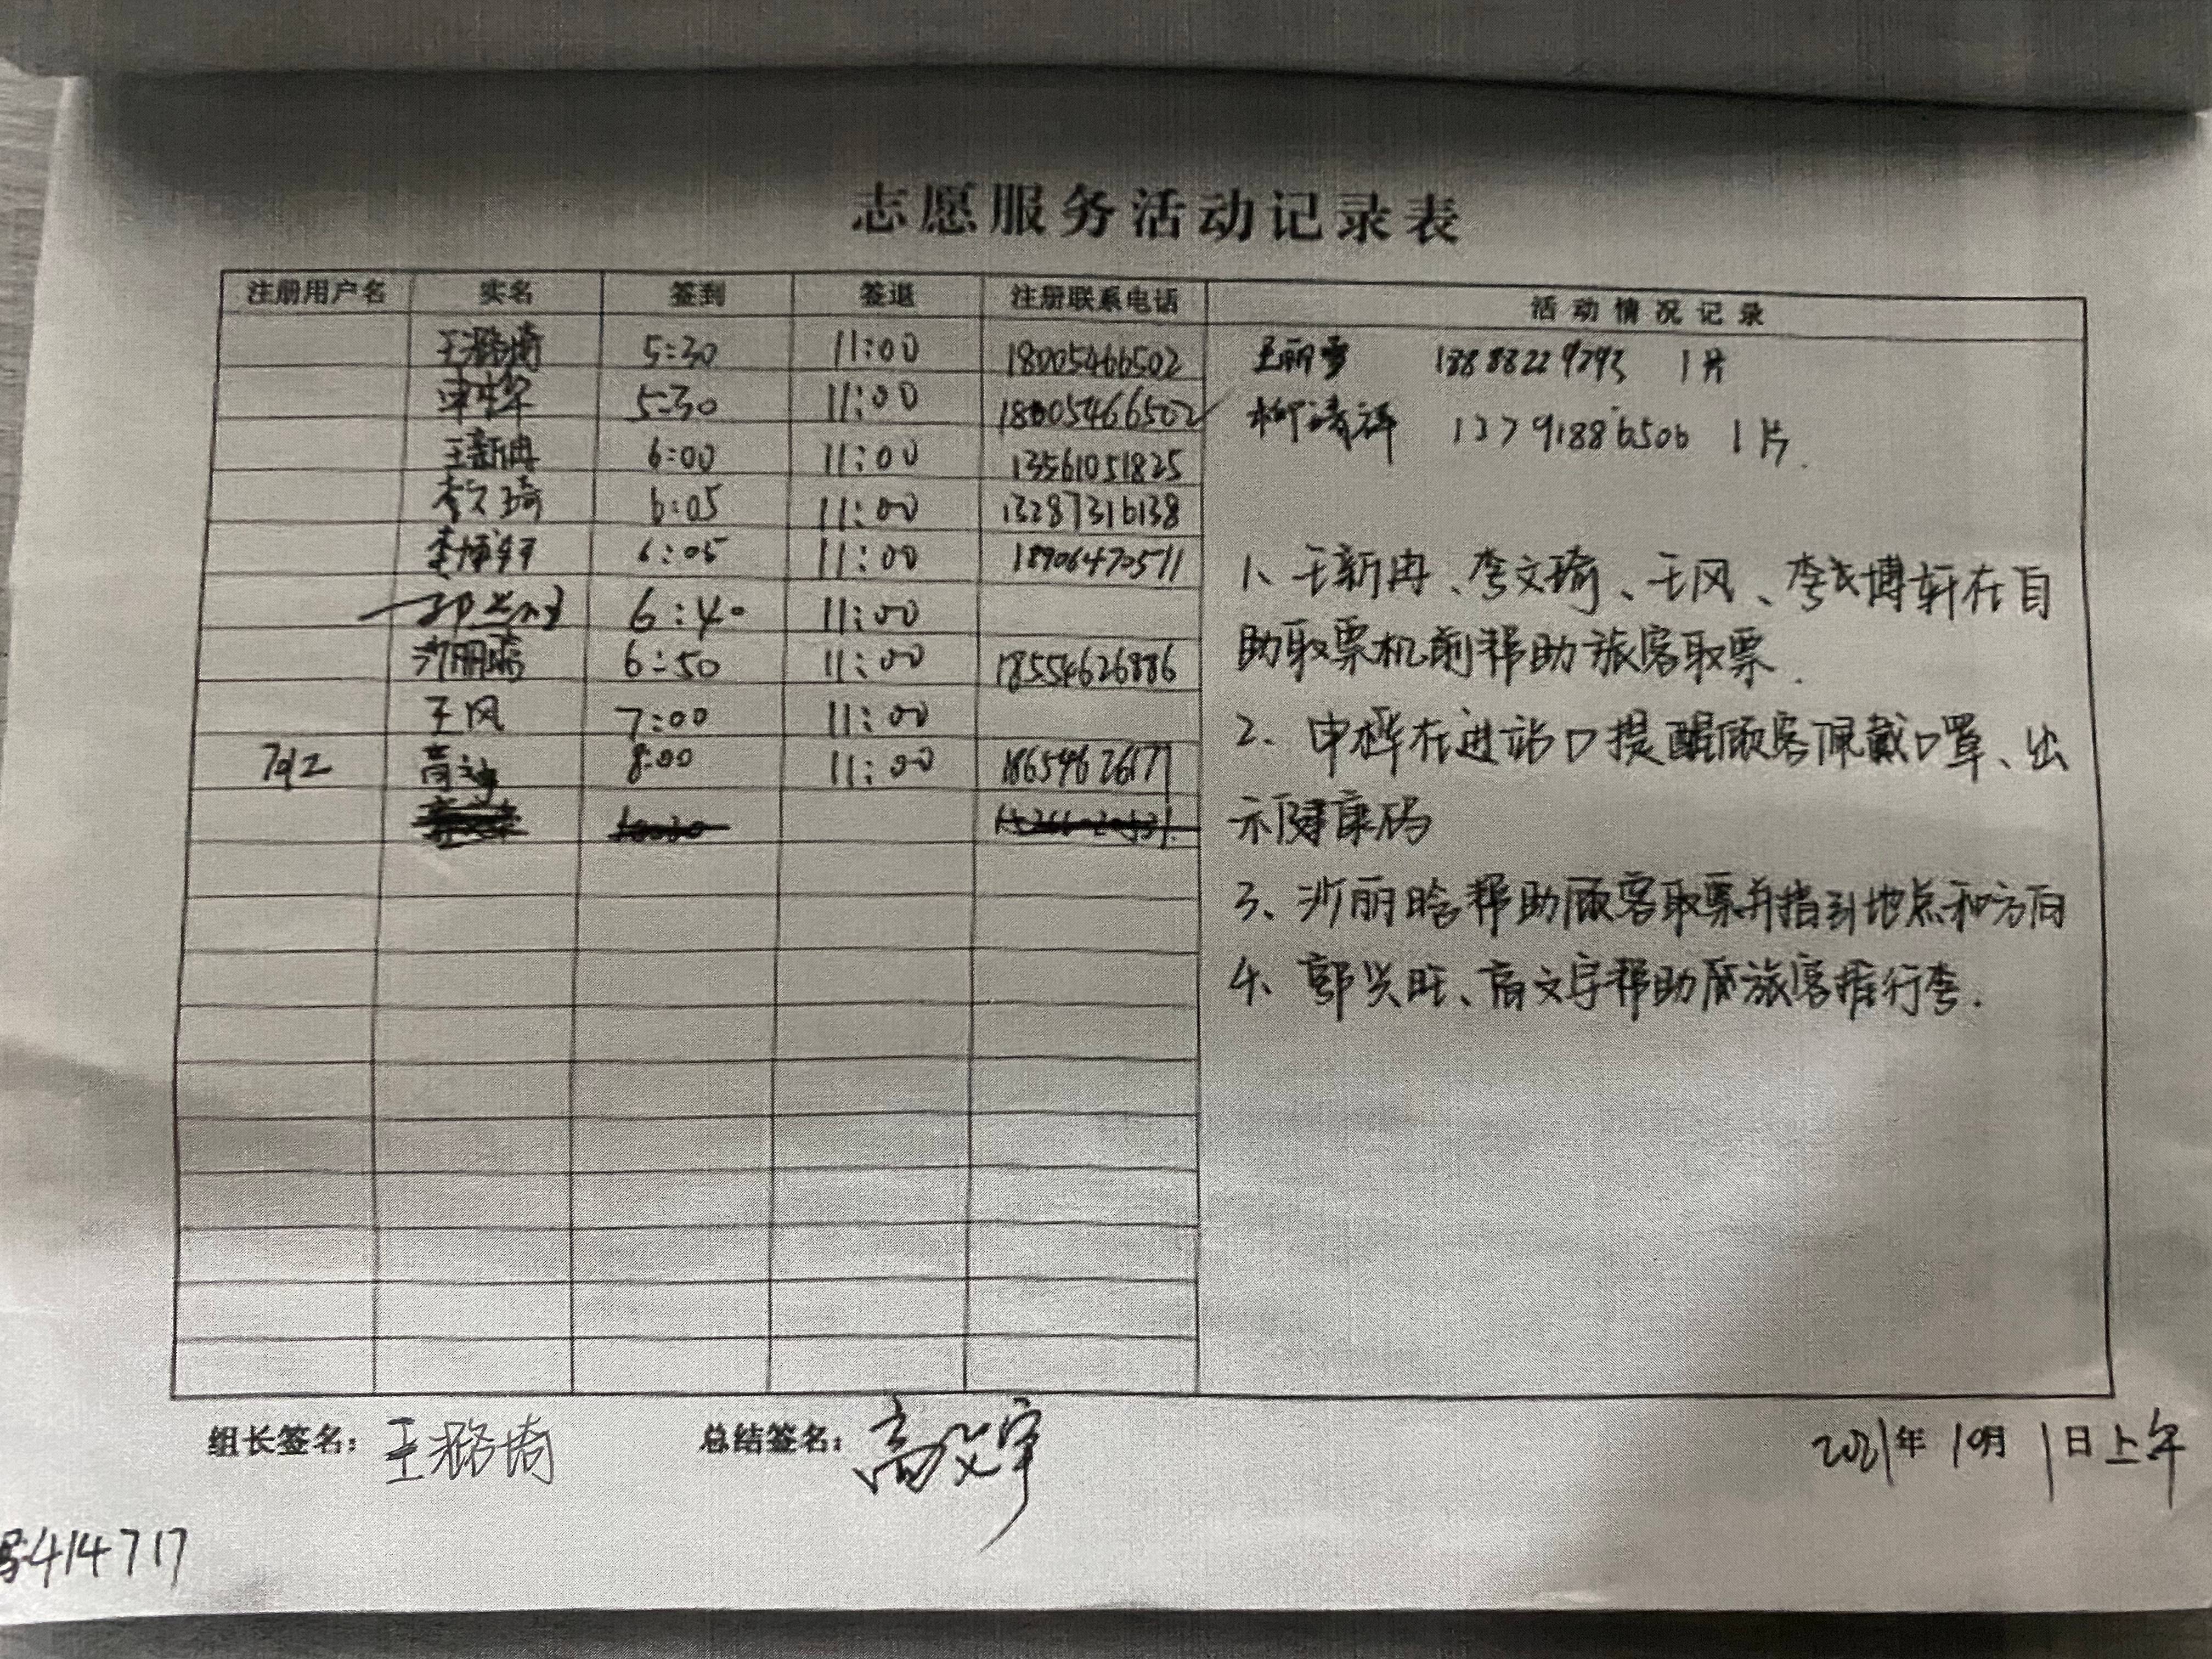 志愿服务活动记录表
注册用户名 实名 签到 签退 注册联系电话 活动情况记录
王潞埼 5:30 11:00 18005466502
申桦 5:30 11:00 18005466502
王新冉 6:00 11:00 13561051825
李文琦 6:05 11:00 13287316138
李博轩 6:05 11:00 18906470511
6:40 11:00
沙丽晗 6:50 11:00 18554626886
王风 7:00 11:00
高文宇 8:00 11:00 18654626177
王丽雪 18888229793 1片
柳清祥 13791886506 1片.
1、王新冉、李文琦、王风、李博轩在自
助取票机前帮助旅客取票.
2、申桦在进站口提醒顾客佩戴口罩、出
示健康码
3、沙丽晗帮助顾客取票并指引地点和方向
4、郭兴旺、高文宇帮助旅客推行李.
组长签名：王潞埼 总结签名：高文宇 2021年10月1日上午
414717